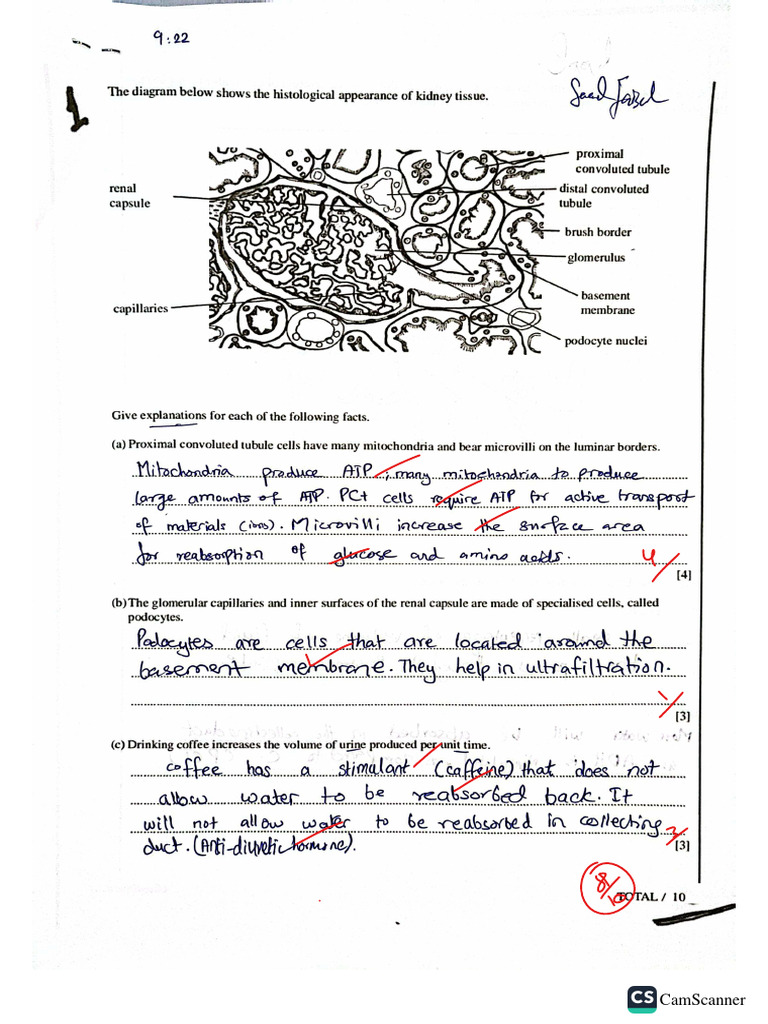 9:22
1
The diagram below shows the histological appearance of kidney tissue.
Saad
proximal
convoluted tubule
renal
capsule
distal convoluted
tubule
brush border
glomerulus
basement
membrane
capillaries
podocyte nuclei
Give explanations for each of the following facts.
(a) Proximal convoluted tubule cells have many mitochondria and bear microvilli on the luminar borders.
Mitochondria produce ATP ; many mitochondria to produce
large amounts of ATP. PCt cells require ATP for active transport
of materials (ions). Microvilli increase the surface area
for reabsorption of glucose and amino acids.
4/
[4]
(b) The glomerular capillaries and inner surfaces of the renal capsule are made of specialised cells, called
podocytes.
Podocytes are cells that are located around the
basement membrane. They help in ultrafiltration.
1/
[3]
(c) Drinking coffee increases the volume of urine produced per unit time.
coffee has a stimulant (caffeine) that does not
allow water to be reabsorbed back. It
will not allow water to be reabsorbed in collecting
duct. (Anti-diuretic hormone).
3/
[3]
8/10
TOTAL / 10
CS CamScanner